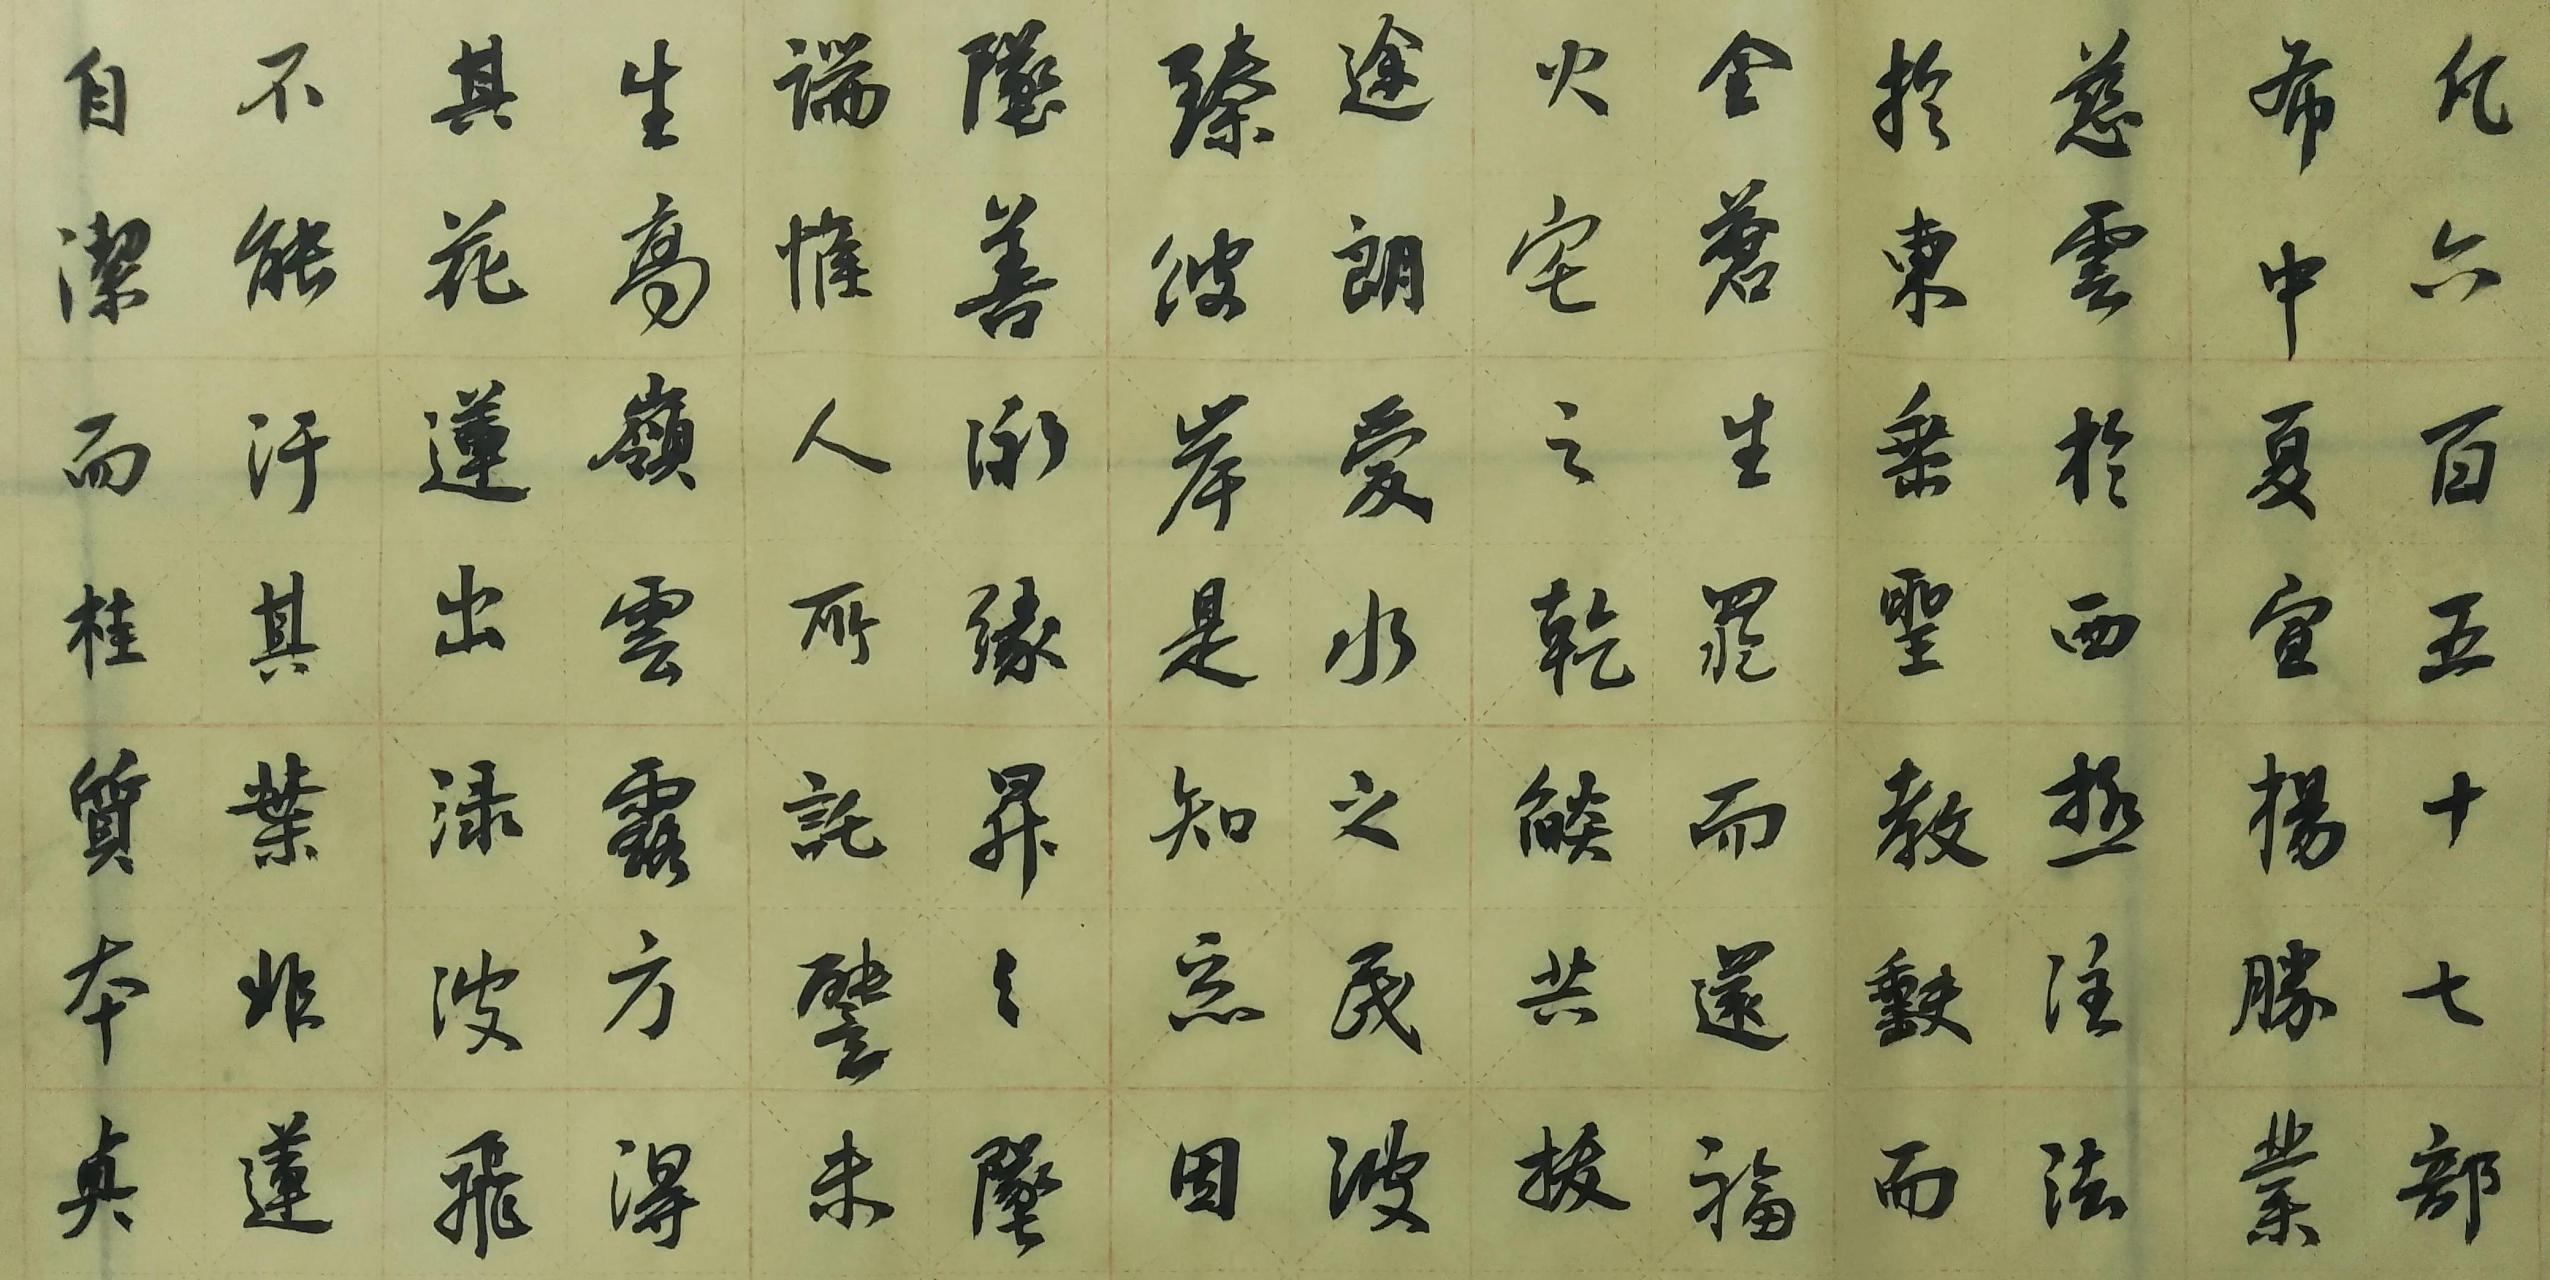 凡六百五十七部
布中夏宣揚勝業
慈雲於西極注法
於東垂聖教缺而
全蒼生罪而還福
火宅之乾焰共拔
途朗愛水之昏波
臻彼岸是知惡因
墜善以緣昇々墜
端惟人所託譬夫
生高嶺雲露方得
其花蓮出淥波飛
不能汙其葉非蓮
自潔而桂質本貞